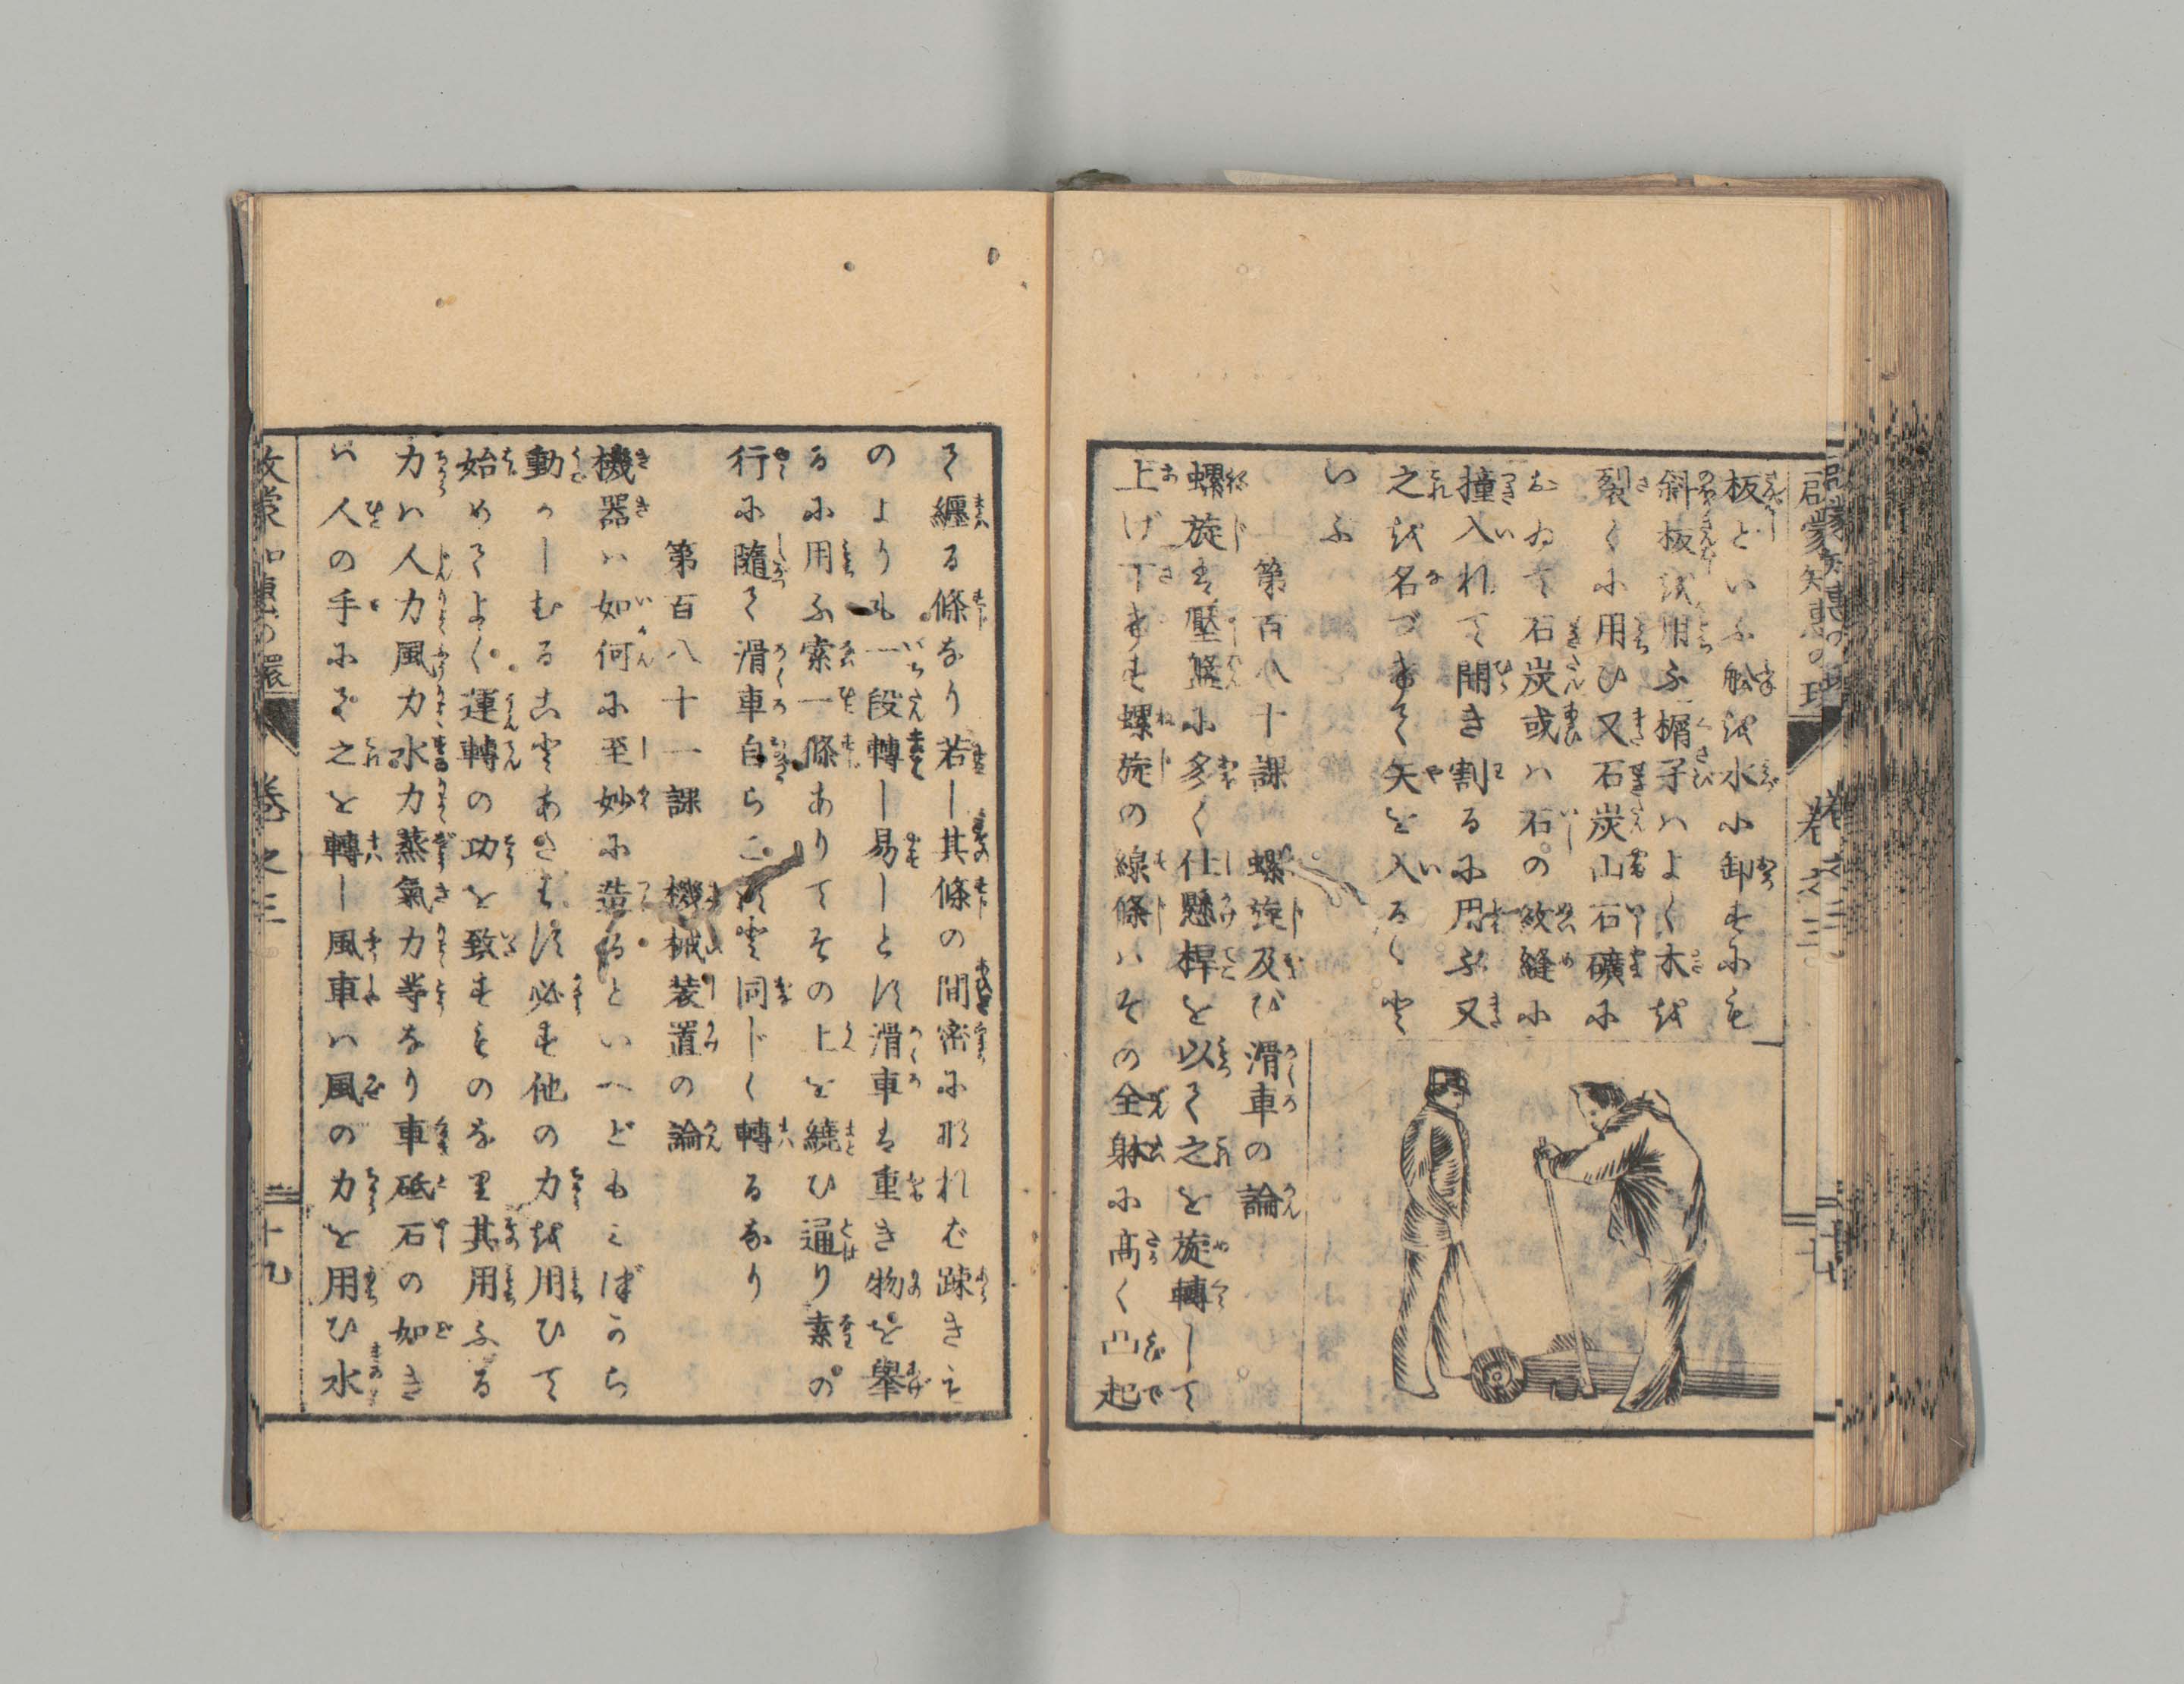 啓蒙知恵の環 卷之三
板といふ舩を水に卸すにも
斜板を用ふ楔子はよく木を
裂くに用ひ又石炭山石礦に
おゐて石炭或ハ石の紋縫に
撞入れて開き割るに用ふ又
之を名づけて矢を入るゝと
いふ
第百八十課 螺旋及び滑車の論
螺旋は壓盤に多く仕懸桿を以て之を旋轉して
上げ下げす螺旋の線條ハその全躰に高く凸起
て纏る條なり若し其條の間密に形れば疎きも
のよりも一段轉し易しとす滑車は重き物を擧
るに用ふ索一條ありてその上を繞ひ通り素の
行に隨て滑車自らころと同じく轉るなり
第百八十一課 機械装置の論
機器ハ如何に至妙に造るといへどもこればかりち
動かしむることあたはず必ず他の力を用ひて
始めてよく運轉の功を致すものなり其用ふる
力ハ人力風力水力蒸氣力等なり車砥石の如き
ハ人の手にて之を轉し風車ハ風の力を用ひ水
啓蒙知恵の環 卷之三 二十九